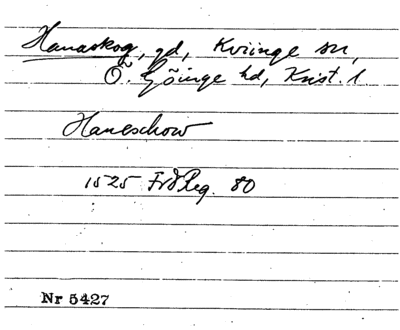 Hanaskog, gd, Kviinge sn,
Ö. Göinge hd, Krist. l
Haneschow
1525 FrdReg. 80
Nr 5427